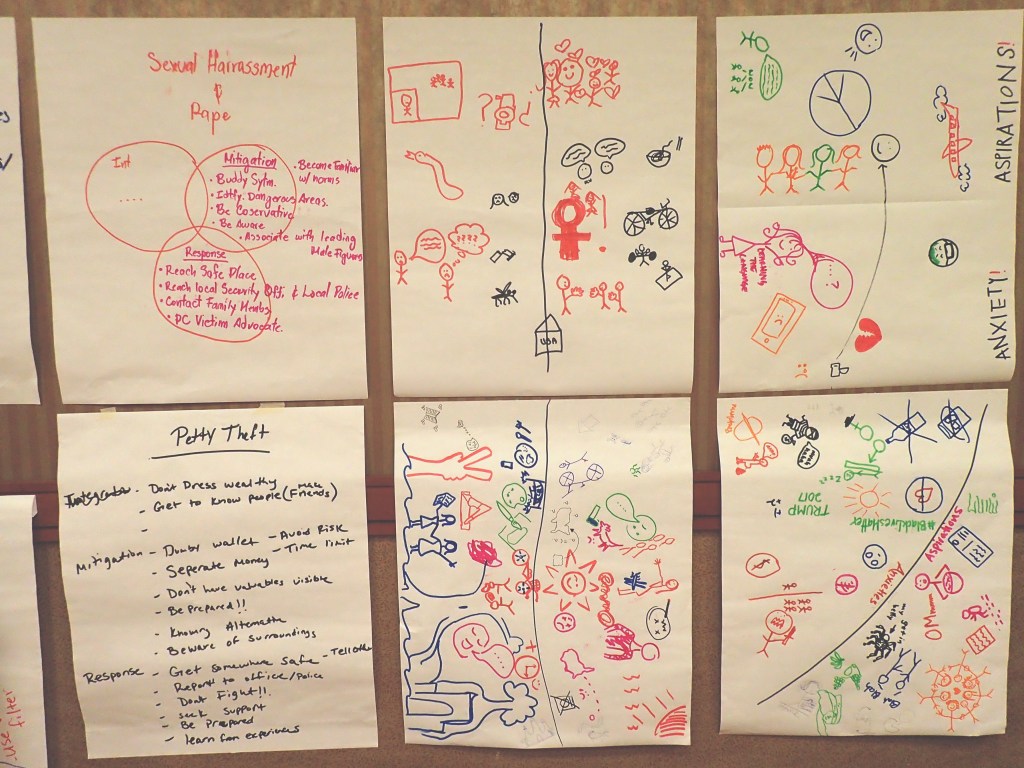 Sexual Hairassment
&
Rape
Int
....
Mitigation
• Buddy Sytm.
• Idtfy. Dangerous Areas.
• Be Coservative
• Be Aware
• Associate with leading
Male Figures
• Become Familiar
w/ norms
Response
• Reach Safe Place
• Reach local Security Off. & Local Police
• Contact Family Membs
• PC Victim Advocate.
Petty Theft
- Don't Dress wealthy
- Get to know people (Friends)
Male
-
Mitigation - Dumby wallet - Avoid Risk
- Seperate Money - Time limit
- Don't have valuables visible
- Be Prepared!!
- Knowing Alternate
- Beware of surroundings
Response - Get somewhere safe
- Report to office/Police
- Dont Fight!!
- seek support
- Be Prepared
- learn from experiences
????
USA
ASPIRATIONS!
ANXIETY!
...?
TRUMP
2017
#BlackLivesMatter
Aspirations
Anxieties
OMmmm
use filter